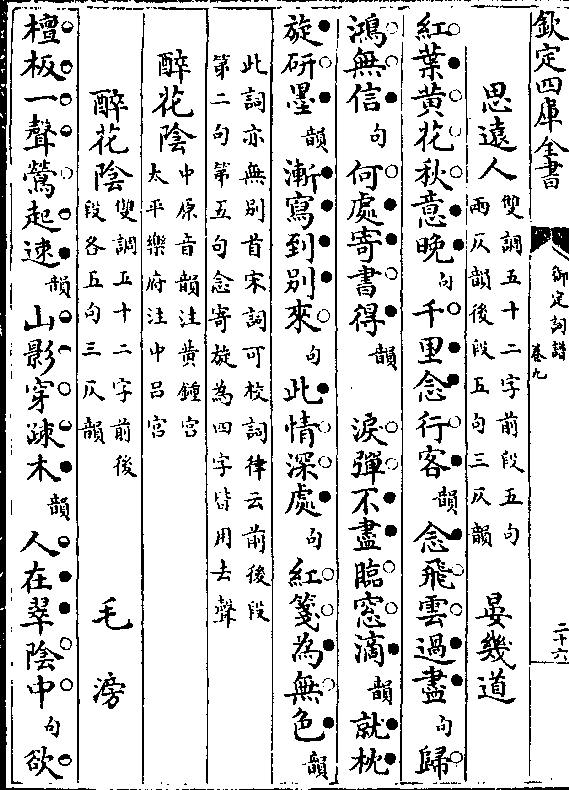 欽定四庫全書
御定詞譜
卷九
二十六
思遠人
雙調五十二字前段五句
兩仄韻後段五句三仄韻
晏幾道
紅葉黃花秋意晚句千里念行客韻念飛雲過盡句歸
鴻無信句何處寄書得韻　淚彈不盡臨窓滴韻就枕
旋研墨韻漸寫到別來句此情深處句紅箋為無色韻
此詞亦無別首宋詞可校詞律云前後段
第二句第五句念寄旋為四字皆用去聲
醉花陰
中原音韻注黃鍾宮
太平樂府注中呂宮
醉花陰
雙調五十二字前後
段各五句三仄韻
毛滂
檀板一聲鶯起速韻山影穿疎木韻人在翠陰中句欲